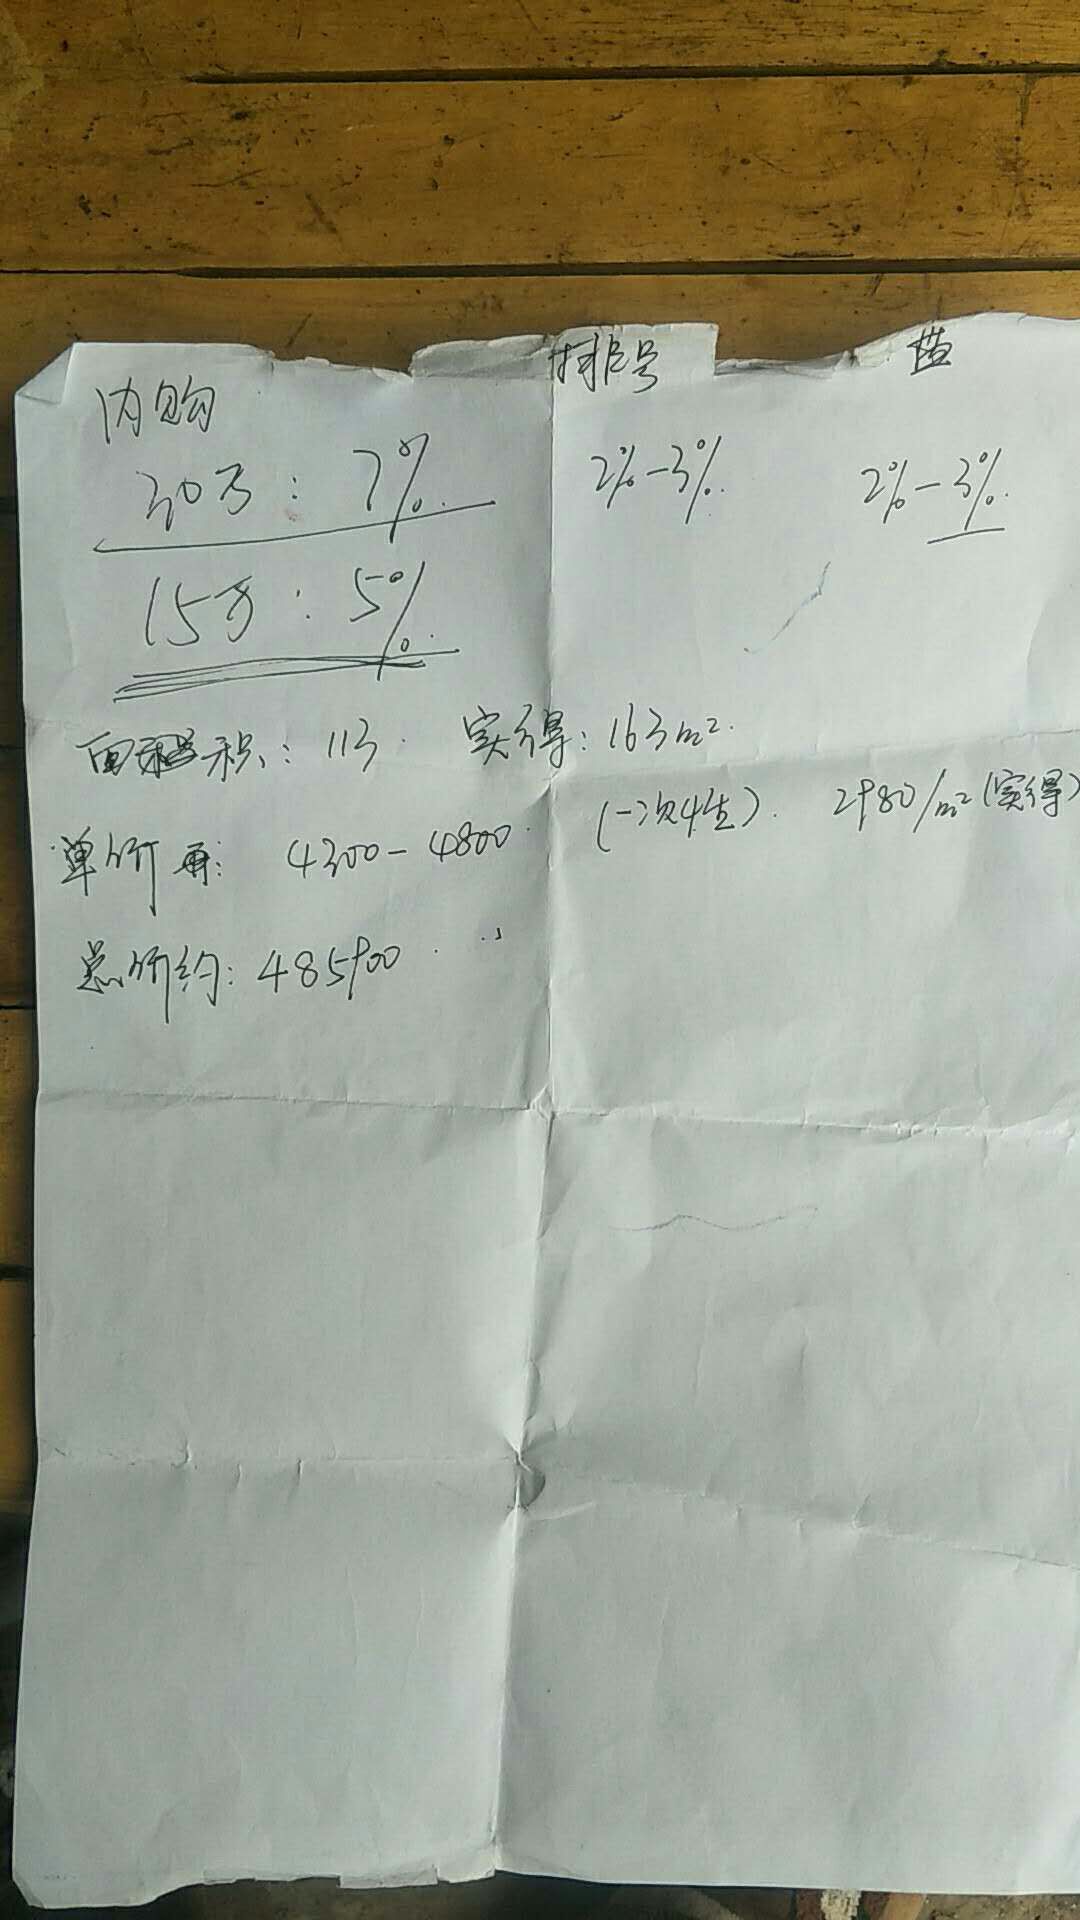 内购 排号
30万：7%. 2%-3%. 2%-3%.
15万：5%.
面积：113. 实得：163m².
单价：4300-4800. (一次性). 2980/m²(实得)
总价约：485900.